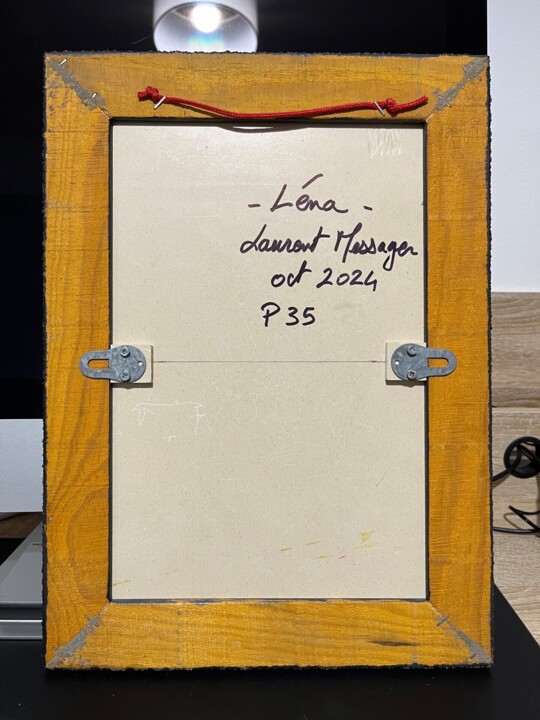 - Léna -
Laurent Messager
oct 2024
P 35